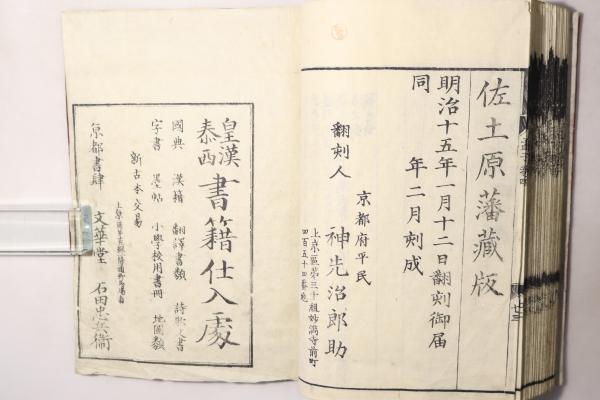 佐土原藩藏版
明治十五年一月十二日翻刻御届
同　年二月刻成
京都府平民
翻刻人　神先治郎助
上京區第三十組妙満寺前町
四百五十四番地
皇漢
泰西
書籍仕入處
國典　漢籍　翻譯書類　詩歌人書
字書　墨帖　小學校用書冊　地圖類
新古本交易
京都書肆　文華堂　石田忠兵衞